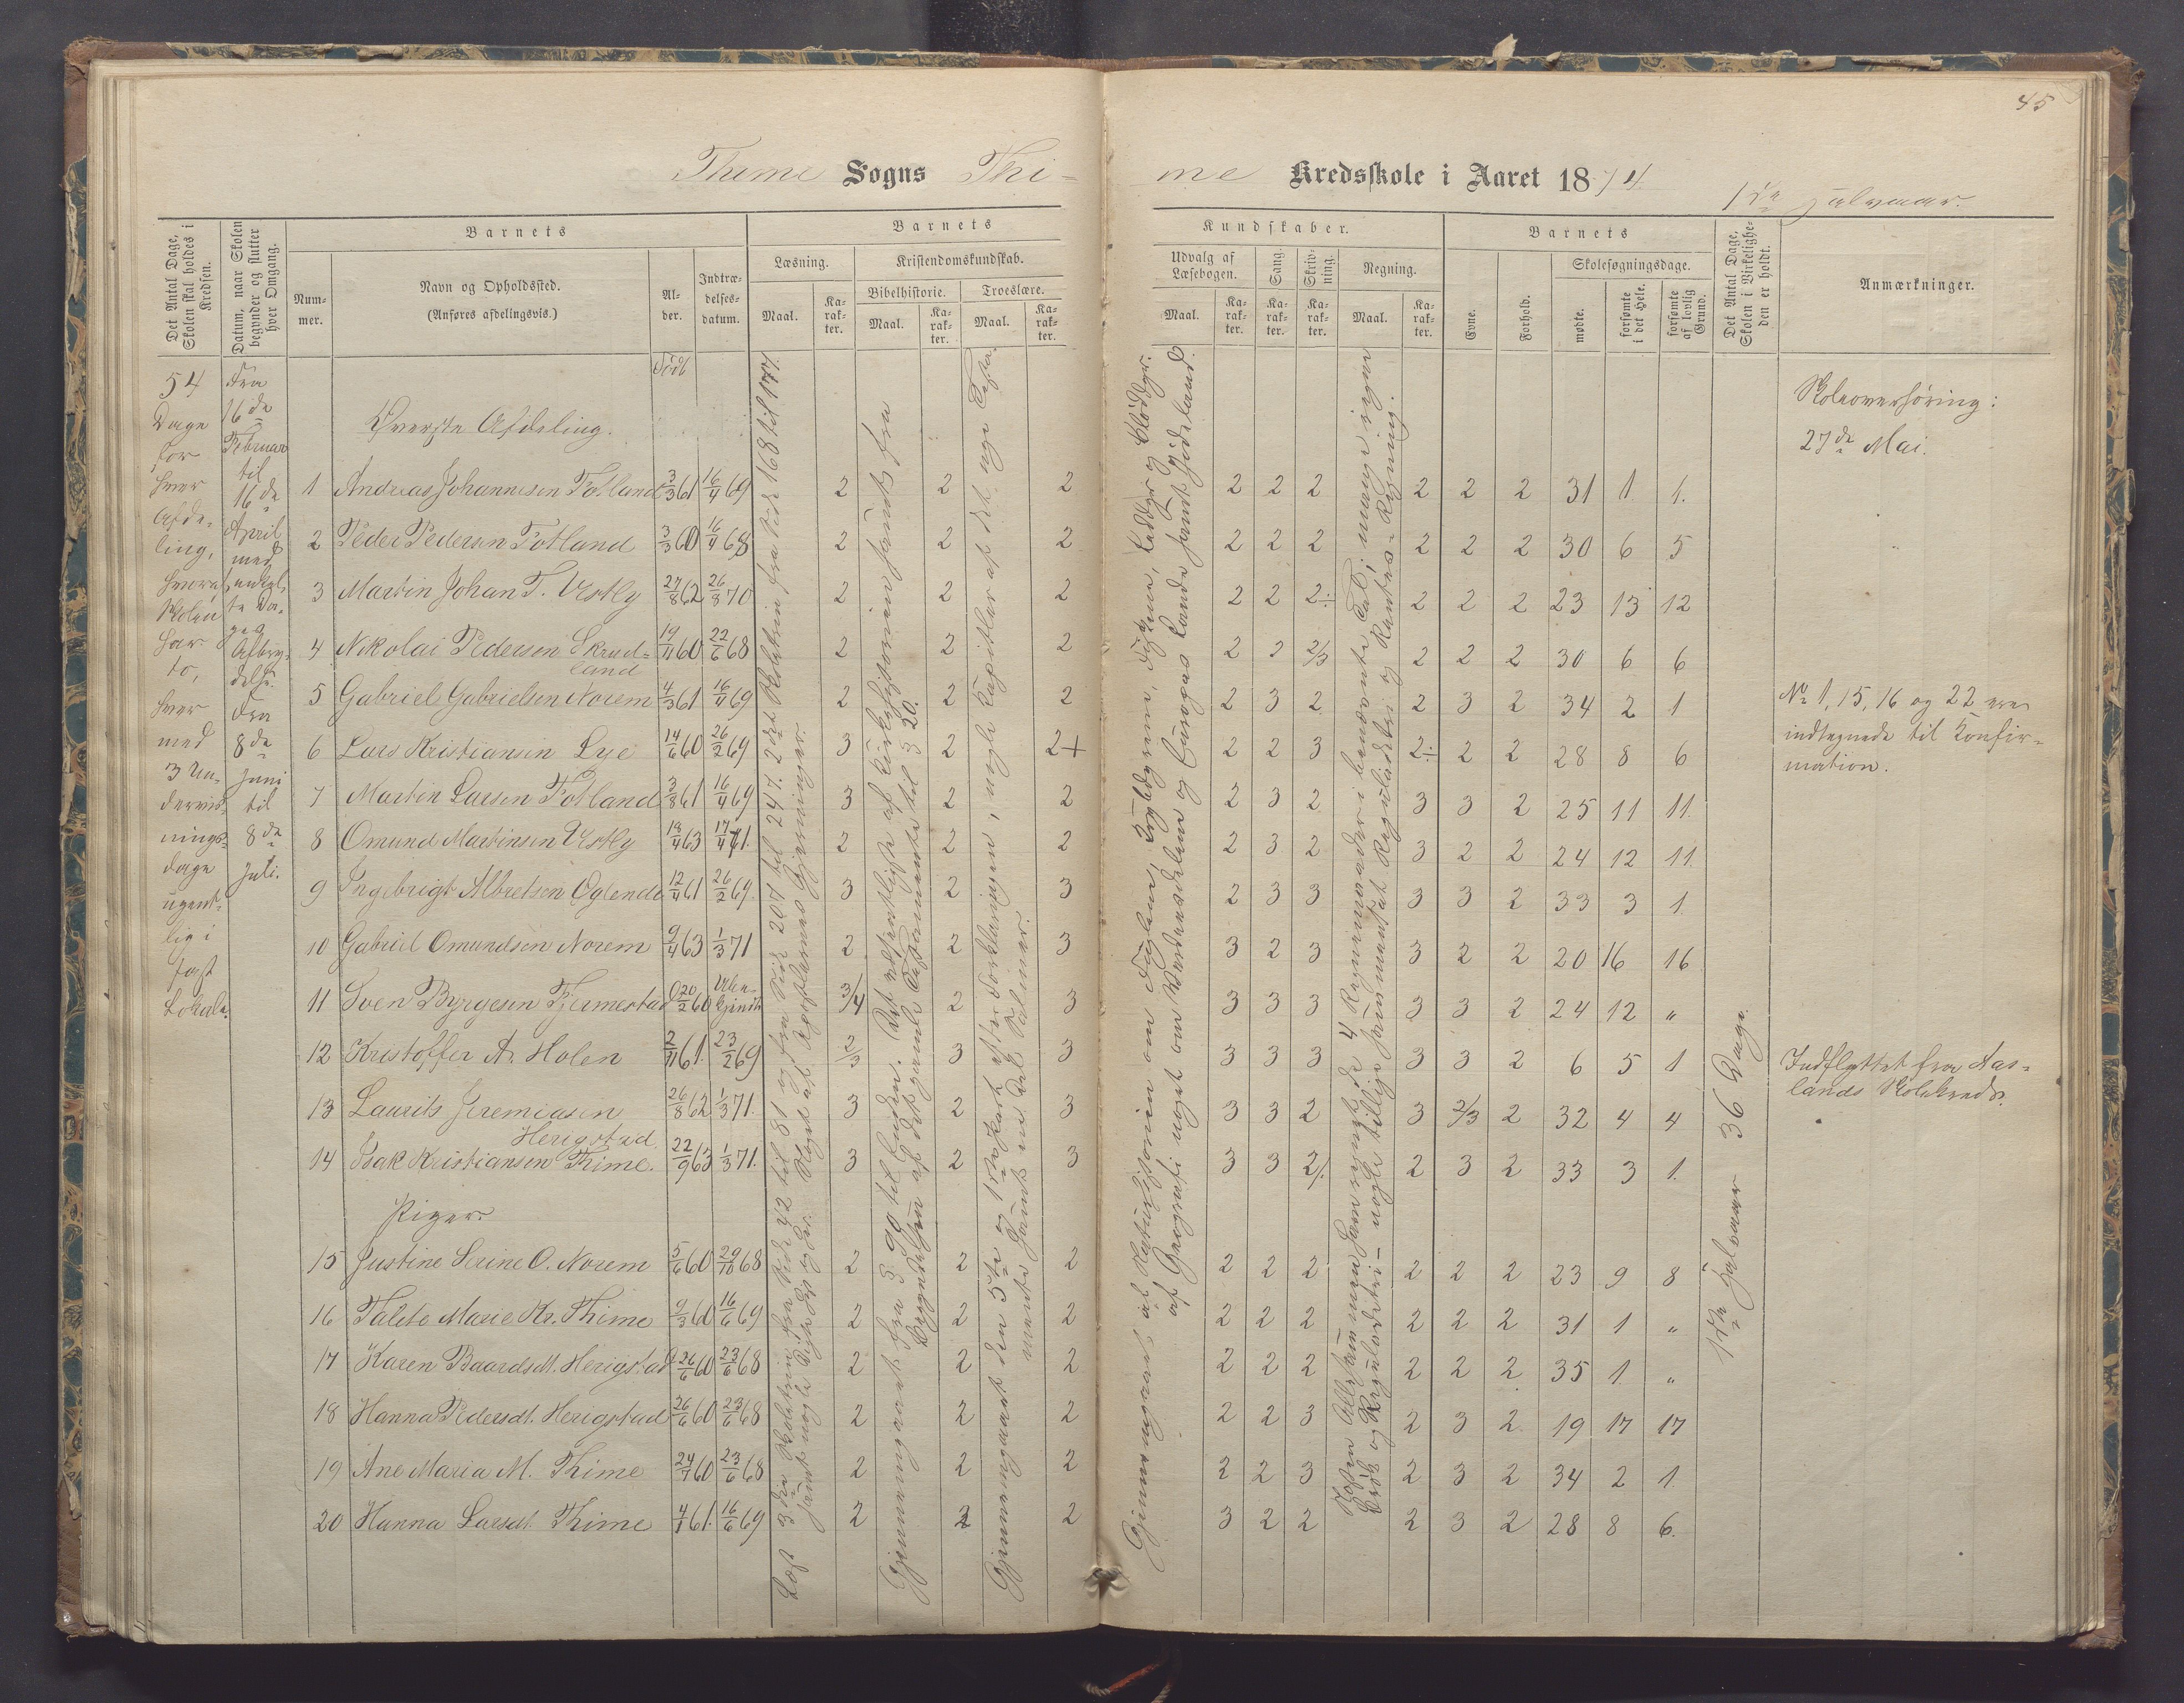 45
Thime Sogns Thi-
me Kredsskole i Aaret 1874.
1ste Halvaar.
Det Antal Dage, Skolen skal holdes i Kredsen.
Datum, naar Skolen begynder og slutter hver Omgang.
Barnets
Nummer.
Navn og Opholdssted.
(Anføres afdelingsvis.)
Alder.
Indtrædelsesdatum.
Barnets
Læsning.
Maal.
Karakter.
Kristendomskundskab.
Bibelhistorie.
Maal.
Karakter.
Troeslære.
Maal.
Karakter.
Kundskaber.
Udvalg af Læsebogen.
Maal.
Karakter.
Sang.
Karakter.
Skrivning.
Karakter.
Regning.
Maal.
Karakter.
Barnets
Evne.
Forhold.
Skolesøgningsdage.
mødte.
forsømte i det Hele.
forsømte af lovlig Grund.
Det Antal Dage, Skolen i Virkeligheden er holdt.
Anmærkninger.
54
Dage
for
hver
Afde-
ling,
hvoraf
Skolen
har
to,
hver
med
3 Un-
dervis-
nings-
dage
ugent-
lig i
fast
Lokale.
Fra
16de
Februar
til
16de
April
med
enkel-
te Da-
ges
Afbry-
delse.
Fra
8de
Juni
til
8de
Juli.
Født
Øverste Afdeling.
1 Andreas Johannesen Fotland 3/3 61 16/4 69 2 2 2 2 2 2 2 2 2 31 1 1.
2 Peder Pedersen Fotland 3/3 60 16/4 68 2 2 2 2 2 2 2 2 2 30 6 5
3 Martin Johan T. Vestly 27/8 62 26/3 70 2 2 2 2 2 2÷ 2 2 2 23 13 12
4 Nikolai Pedersen Skrud-
land 19/11 60 22/6 68 2 2 2 2 2 2/3 2 2 2 30 6 6
5 Gabriel Gabrielsen Norem 4/3 61 16/4 69 2 2 2 2 3 2 2 3 2 34 2 1
6 Lars Kristiansen Lye 14/6 60 26/2 69 3 2 2+ 2 2 3 2÷ 2 2 28 8 6
7 Martin Larsen Fotland 3/8 61 16/4 69 3 2 2 2 3 2 3 3 2 25 11 11.
8 Omund Martinsen Vestly 18/4 63 17/4 71. 2 2 2 2 3 2 3 2 2 24 12 11
9 Ingebrigt Albretsen Oglende 12/4 61 26/2 69. 3 2 3 2 3 3 3 3 2 33 3 1
10 Gabriel Omundsen Norem 9/4 63 1/3 71 2 2 3 3 2 3 3 2 2 20 16 16
11 Sven Byrgesen Fjermestad 20/2 60 3/4 2 3 3 3 3 3 3 2 24 12 "
12 Kristoffer A. Holen 2/11 61. 23/2 69 2/3 3 3 3 3 3 3 3 2 6 5 1
13 Laurits Jeremiasen
Herigstad 26/8 62 1/3 71. 3 2 3 3 3 2 3 2/3 2 32 4 4
14 Isak Kristiansen Thime. 22/9 63 1/3 71. 3 2 3 3 3 2/. 2 3 2 33 3 1.
Piger.
15 Justine Serine O. Norem 5/6 60 29/10 68 2 2 2 2 2 2 2 2 2 23 9 8
16 Talete Marie Kr. Thime 9/3 60 16/6 69 2 2 2 2 2 2 2 2 2 31 1 "
17 Karen Baardsdt. Herigstad 26/6 60 23/6 68 2 2 2 2 2 2 2 2 2 35 1 "
18 Hanna Pedersdt. Herigstad 26/6 60 23/6 68 2 2 2 2 2 3 2 3 2 19 17 17
19 Ane Maria M. Thime 24/7 60 23/6 68 2 2 2 2 2 3 2 3 2 34 2 1.
20 Hanna Larsdt. Thime 4/1 61. 16/6 69 2 2 2 3 2 2 2 3 2 28 8 6.
Læst 3die Skoletrin fra Side 42 til 81 og fra Side 207 til 247. 2det Skoletrin fra Side 168 til 177.
samt nogle Vers og Noget af Apostlernes Gjerninger.
Gjennemgaaet fra § 90 til Enden. Det væsentligste af Kirkehistorien samt fra
Begyndelsen af det gamle Testamente til § 20.
Gjennemgaaet den 5te og 1ste Part efter Forklaringen, nogle Kapitler af det nye Testa-
mente samt en Del Salmer.
Gjennemgaaet af Naturhistorien om Fuglene, Krybdyrene, Fiskene, Leddyr og Bløddyr.
af Geografi noget om Verdensdelene og Europas Lande samt Jødeland.
de 4 Regningsarter i benævnte Tal; mange regner
Brøk og Reguladetri – nogle tillige sammensat Reguladetri og Rentes-Regning.
1ste Halvaar 36 Dage.
Skoleoverhøring:
27de Mai.
No 1, 15, 16 og 22 ere
indtegnede til Konfir-
mation.
Indflyttet fra Aas-
lands Skolekreds.